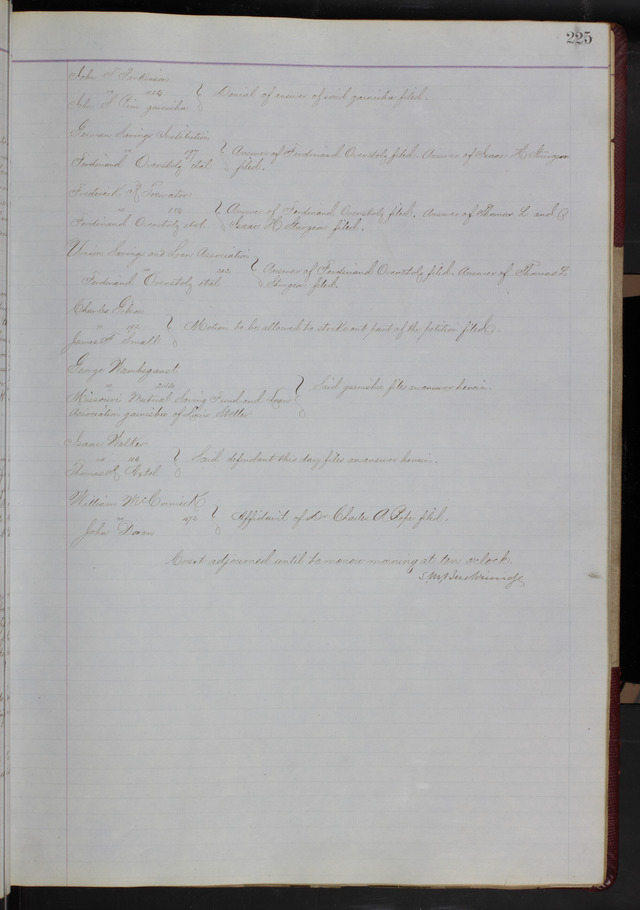 225
John T
vs
John S garnishee } Denial of answer of said garnishee filed.
German Savings Institution
vs 177
Ferdinand Overstolz et al } Answer of Ferdinand Overstolz filed. Answer of Isaac H Sturgeon
filed.
Frederick
vs
Ferdinand Overstolz et al } Answer of Ferdinand Overstolz filed. Answer of Thomas L and
Isaac H Sturgeon filed.
Union Savings and Loan Association
vs 202
Ferdinand Overstolz et al } Answer of Ferdinand Overstolz filed. Answer of Thomas L
Sturgeon filed.
Charles Gibson
vs
James Small } Motion to be allowed to strike out part of the petition filed.
George
vs
Missouri Mutual Saving Fund and Loan } Said garnishee files answer herein
Association garnishee of Louis
Isaac Walker
vs
Thomas } Said defendant this day files answer herein.
William McCormick
vs
John Doran } Affidavit of Dr Charles A. Pope filed.
Court adjourned until to morrow morning at ten oclock
S M Breckinridge